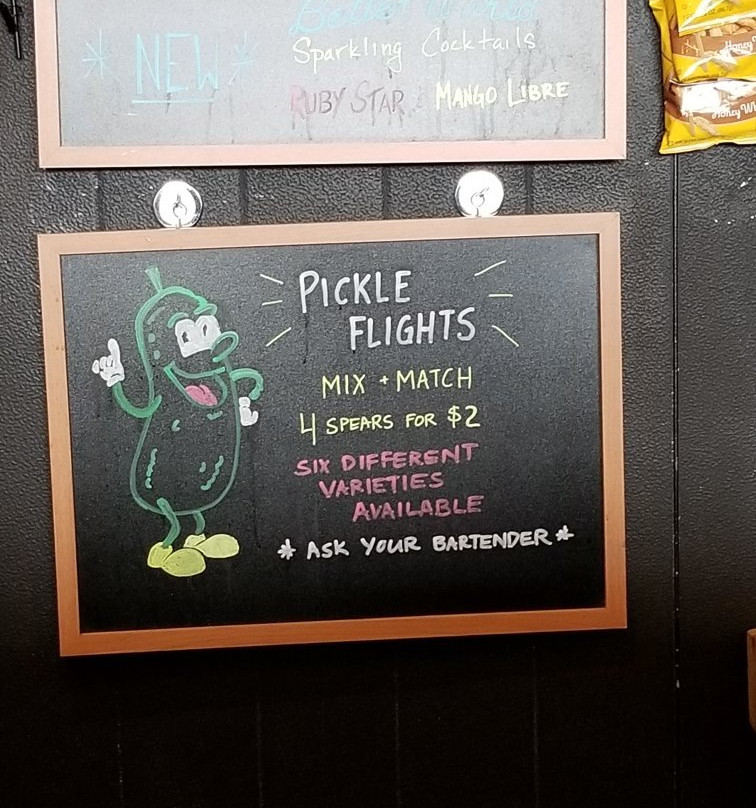 * NEW *
Sparkling Cocktails
RUBY STAR MANGO LIBRE
PICKLE
FLIGHTS
MIX + MATCH
4 SPEARS FOR $2
SIX DIFFERENT
VARIETIES
AVAILABLE
* ASK YOUR BARTENDER *
Honey
Honey Wh